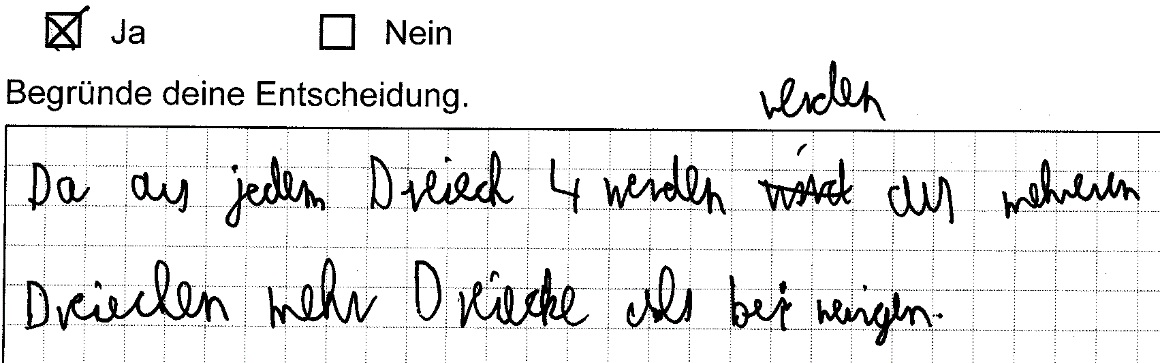 Ja Nein
Begründe deine Entscheidung.
werden
Da aus jedem Dreieck 4 werden wird aus mehreren
Dreiecken mehr Dreiecke als bei wenigen.